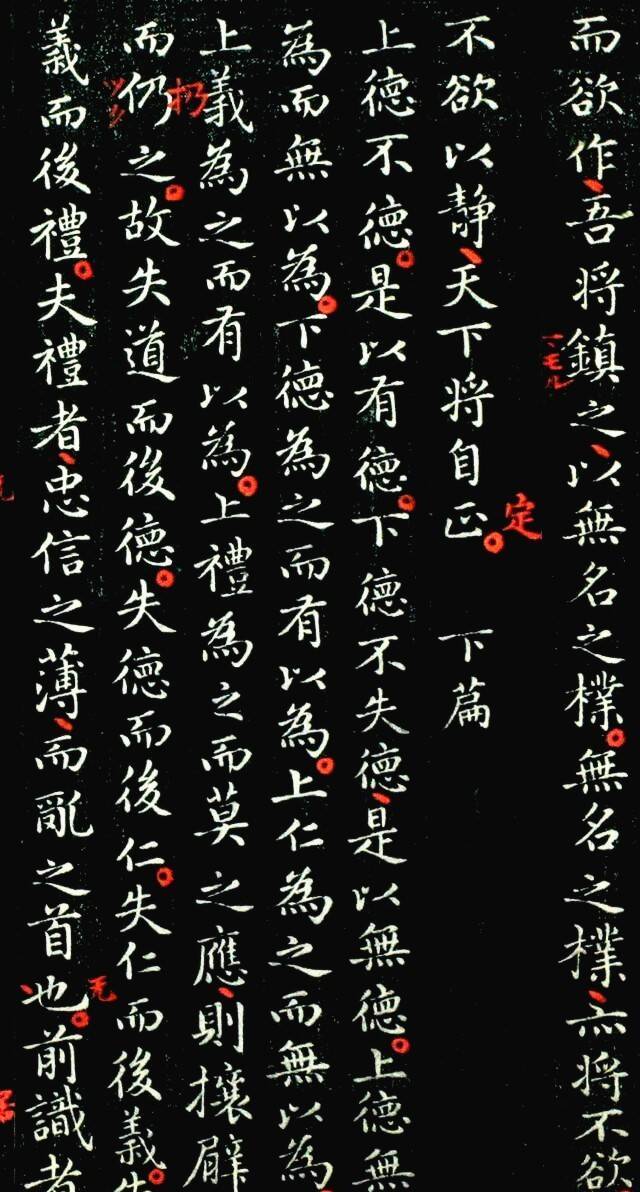 而欲作、吾将鎮之、以無名之樸。無名之樸、亦将不欲
不欲以静、天下将自正。 下篇
上德不德。是以有德。下德不失德、是以無德。上德無
為而無以為。下德為之而有以為。上仁為之而無以為
上義為之而有以為。上禮為之而莫之應、則攘臂
而仍之。故失道而後德。失德而後仁。失仁而後義。失
義而後禮。夫禮者、忠信之薄、而亂之首也。前識者
定
扔
无